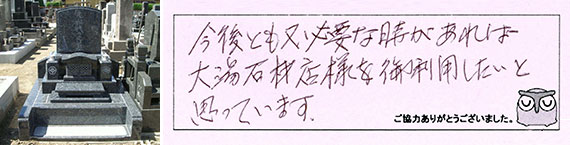 今後とも又必要な時があれば
大湯石材店様を御利用したいと
思っています。
ご協力ありがとうございました。